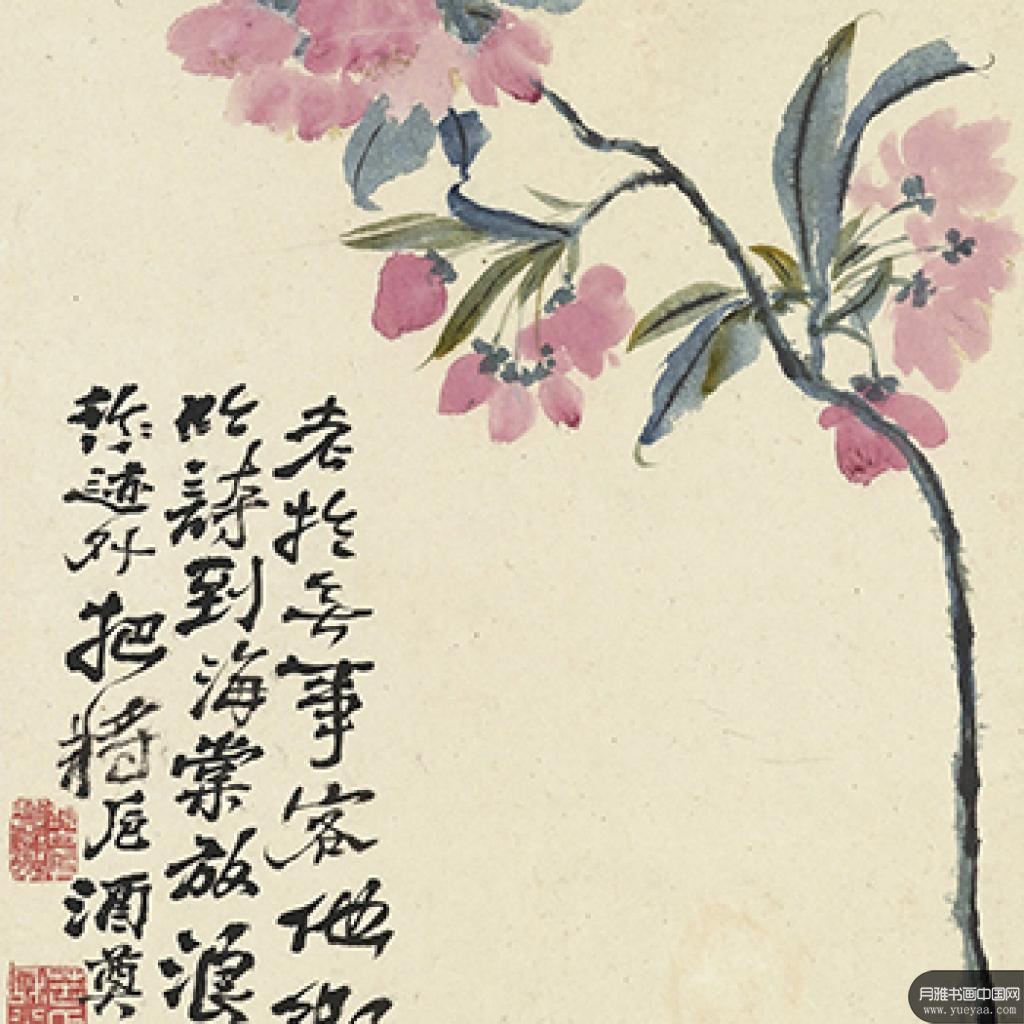 老於無事客他鄉
吟詩到海棠放浪
迹外把將卮酒奠
月雅书画中国网
www.yueyaa.com